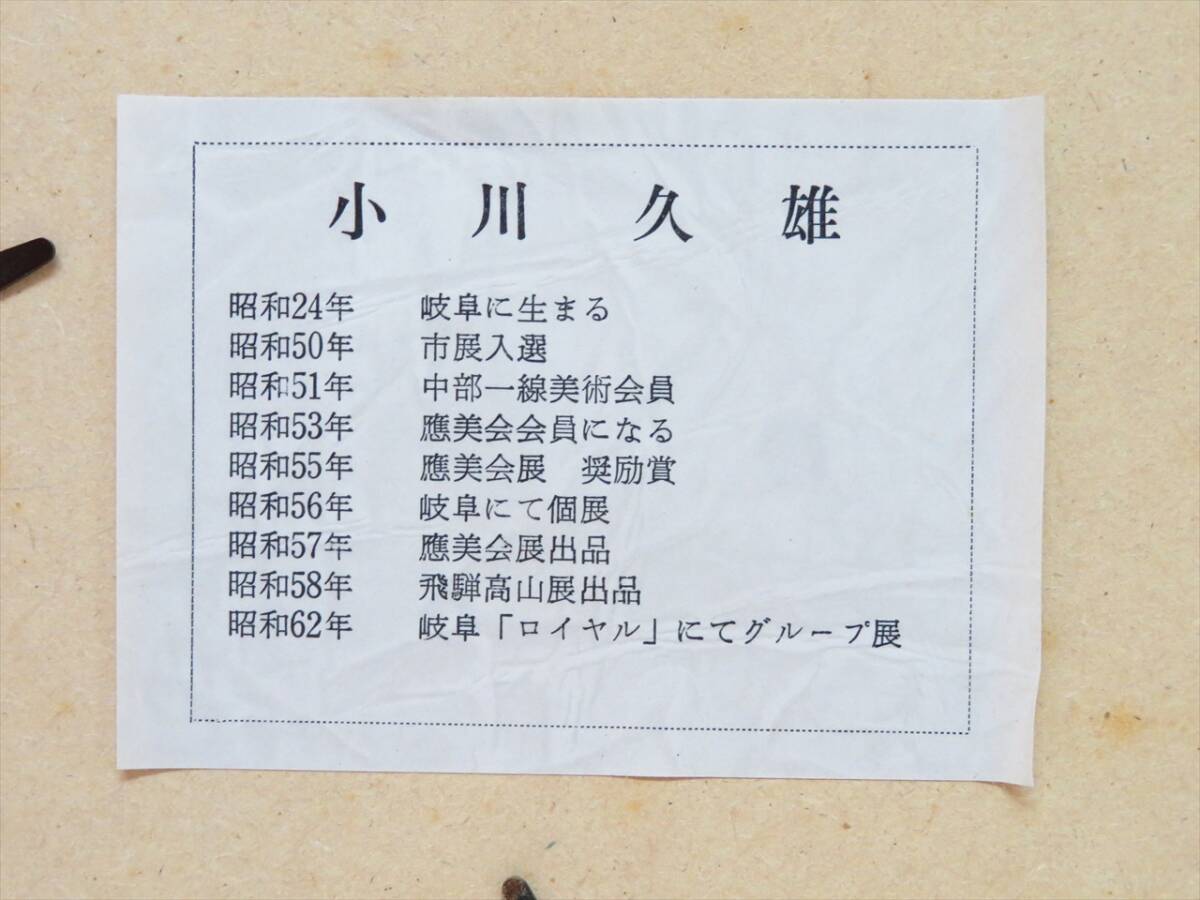 小川久雄
昭和24年 岐阜に生まる
昭和50年 市展入選
昭和51年 中部一線美術会員
昭和53年 應美会会員になる
昭和55年 應美会展 奨励賞
昭和56年 岐阜にて個展
昭和57年 應美会展出品
昭和58年 飛騨高山展出品
昭和62年 岐阜「ロイヤル」にてグループ展